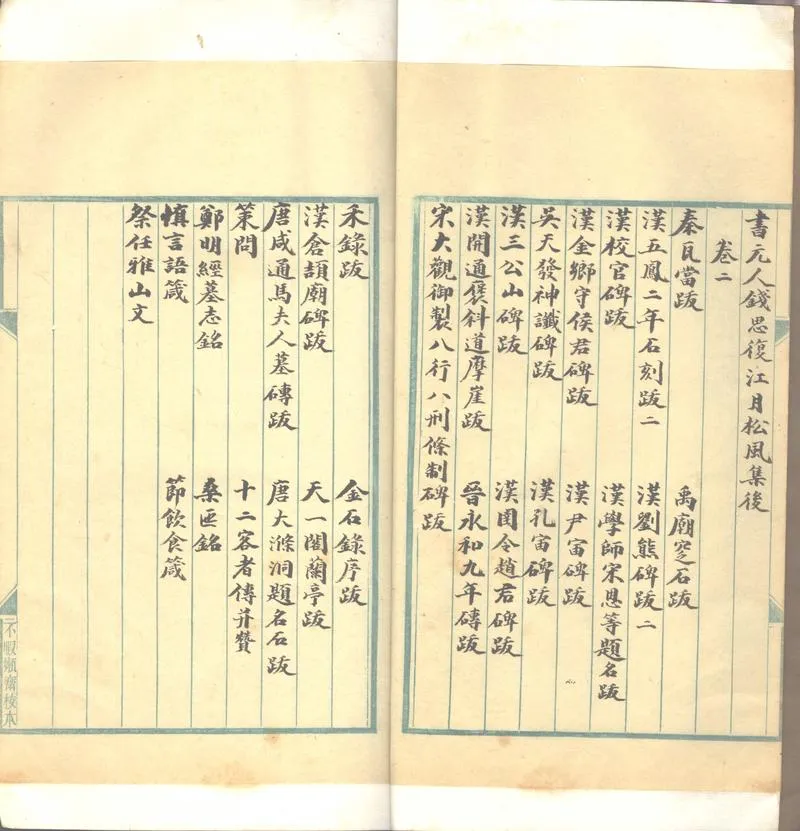 書元人錢思復江月松風集後
卷二
秦瓦當跋　禹廟窆石跋
漢五鳳二年石刻跋二　漢劉熊碑跋二
漢校官碑跋　漢學師宋恩等題名跋
漢金鄉守侯君碑跋　漢尹宙碑跋
吳天發神讖碑跋　漢孔宙碑跋
漢三公山碑跋　漢圉令趙君碑跋
漢開通褒斜道摩崖跋　晉永和九年磚跋
宋大觀御製八行八刑條制碑跋
禾錄跋　金石錄序跋
漢倉頡廟碑跋　天一閣蘭亭跋
唐咸通馬夫人墓磚跋　唐大滌洞題名石跋
策問　十二客者傳并贊
鄭明經墓志銘　桑匜銘
慎言語箴　節飲食箴
祭任雅山文
不暇嬾齋校本